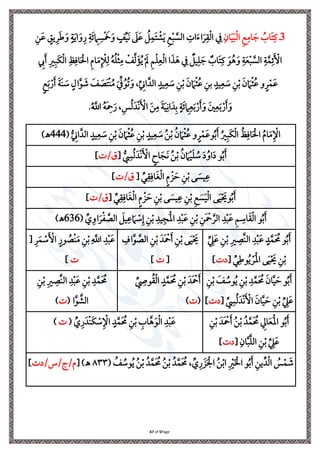 3. كِتَابُ جَامِعِ الْبَيَانِ فِي الْقِرَاءَاتِ السَّبْعِ يَشْتَمِلُ عَلَى نَيِّفٍ وَخَمْسِمِائَةِ رِوَايَةٍ وَطَرِيقٍ عَنِ
الْأَئِمَّةِ السَّبْعَةِ وَهُوَ كِتَابٌ جَلِيلٌ فِي هَذَا الْعِلْمِ لَمْ يُؤَلَّفْ مِثْلُهُ لِلْإِمَامِ الْحَافِظِ الْكَبِيرِ أَبِي
عَمْرٍو عُثْمَانَ بْنِ سَعِيدِ بْنِ عُثْمَانَ بْنِ سَعِيدِ الدَّانِيِّ، وَتُوُفِّيَ مُنْتَصَفَ شَوَّالٍ سَنَةَ أَرْبَعٍ
وَأَرْبَعِينَ وَأَرْبَعِمِائَةٍ بِدَانِيَةَ مِنَ الْأَنْدَلُسِ، رَحِمَهُ اللَّهُ.
الْإِمَامُ الْحَافِظُ الْكَبِيرُ أَبُو عَمْرٍو عُثْمَانُ بْنُ سَعِيدِ بْنِ عُثْمَانَ بْنِ سَعِيدِ الدَّانِيُّ (444هـ)
أَبُو دَاوُدَ سُلَيْمَانُ بْنُ نَجَاحٍ الْأَنْدَلُسِيُّ [ق/ت]
عِيسَى بْنِ حَزْمٍ الْغَافِقِيُّ [ق/ت]
أَبُو يَحْيَى الْيَسَعِ بْنِ عِيسَى بْنِ حَزْمٍ الْغَافِقِيُّ [ق/ت]
أَبُو الْقَاسِمِ عَبْدِ الرَّحْمَنِ بْنِ عَبْدِ الْمَجِيدِ بْنِ إِسْمَاعِيلَ الصَّفْرَاوِيُّ (636هـ)
أَبُو مُحَمَّدٍ عَبْدِ النَّصِيرِ بْنِ عَلِيِّ بْنِ يَحْيَى الْمَرْيُوطِيُّ [دت]
يَحْيَى بْنِ أَحْمَدَ بْنِ الصَّوَّافِ [ ت ]
عَبْدِ اللَّهِ بْنِ مَنْصُورٍ الْأَسْمَرِ [ ت ]
أَبُو حَيَّانَ مُحَمَّدِ بْنِ يُوسُفَ بْنِ عَلِيِّ بْنِ حَيَّانَ الْأَنْدَلُسِيُّ [دت]
أَحْمَدَ بْنِ مُحَمَّدٍ الْقُوصِيُّ (ت)
مُحَمَّدِ بْنِ عَبْدِ النَّصِيرِ بْنِ الشَّوَّا (ت)
أَبُو الْمَعَالِي مُحَمَّدُ بْنُ أَحْمَدَ بْنِ عَلِيِّ بْنِ اللَّبَّانِ [دت]
عَبْدِ الْوَهَّابِ بْنِ مُحَمَّدٍ الْإِسْكَنْدَرِيُّ ( ت )
شَمْسُ الدِّينِ أَبُو الْخَيْرِ ابْنُ الْجَزَرِيِّ، مُحَمَّدُ بْنُ مُحَمَّدُ بْنُ يُوسُفُ (٨٣٣ هـ) [م/ج/س/دت]